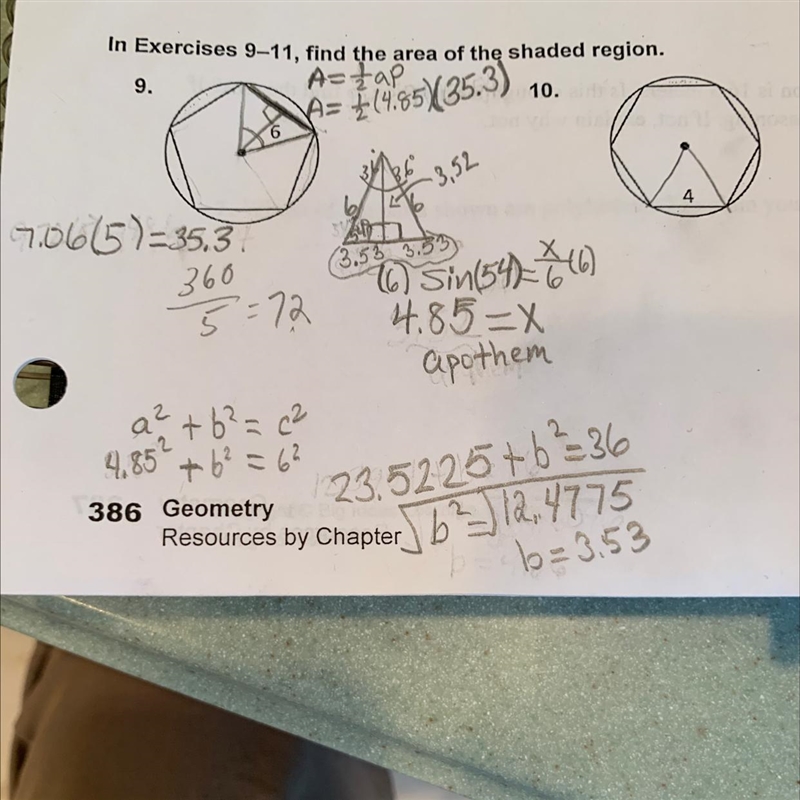 In Exercises 9–11, find the area of the shaded region.
9.
A = ½ap
A = ½(4.85)(35.3)
10.
6
36° 36°
3.52
6 6
3.53 3.53
4
7.06(5) = 35.3
360/5 = 72
(6) Sin(54) = x/6 (6)
4.85 = x
apothem
a² + b² = c²
4.85² + b² = 6²
23.5225 + b² = 36
√b² = √12.4775
b = 3.53
386 Geometry
Resources by Chapter